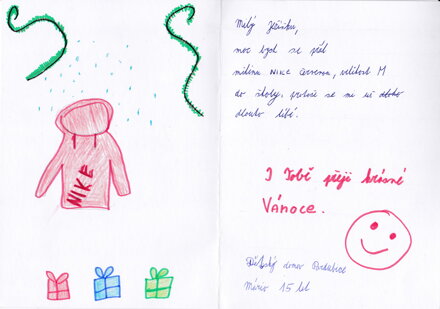 NIKE
Milý Ježíšku,
moc bych si přál
mikinu NIKE červenou, velikost M
do školy, protože se mi už dloho
dlouho líbí.
I Tobě přeji krásné
Vánoce.
Dětský domov Pardubice
15 let